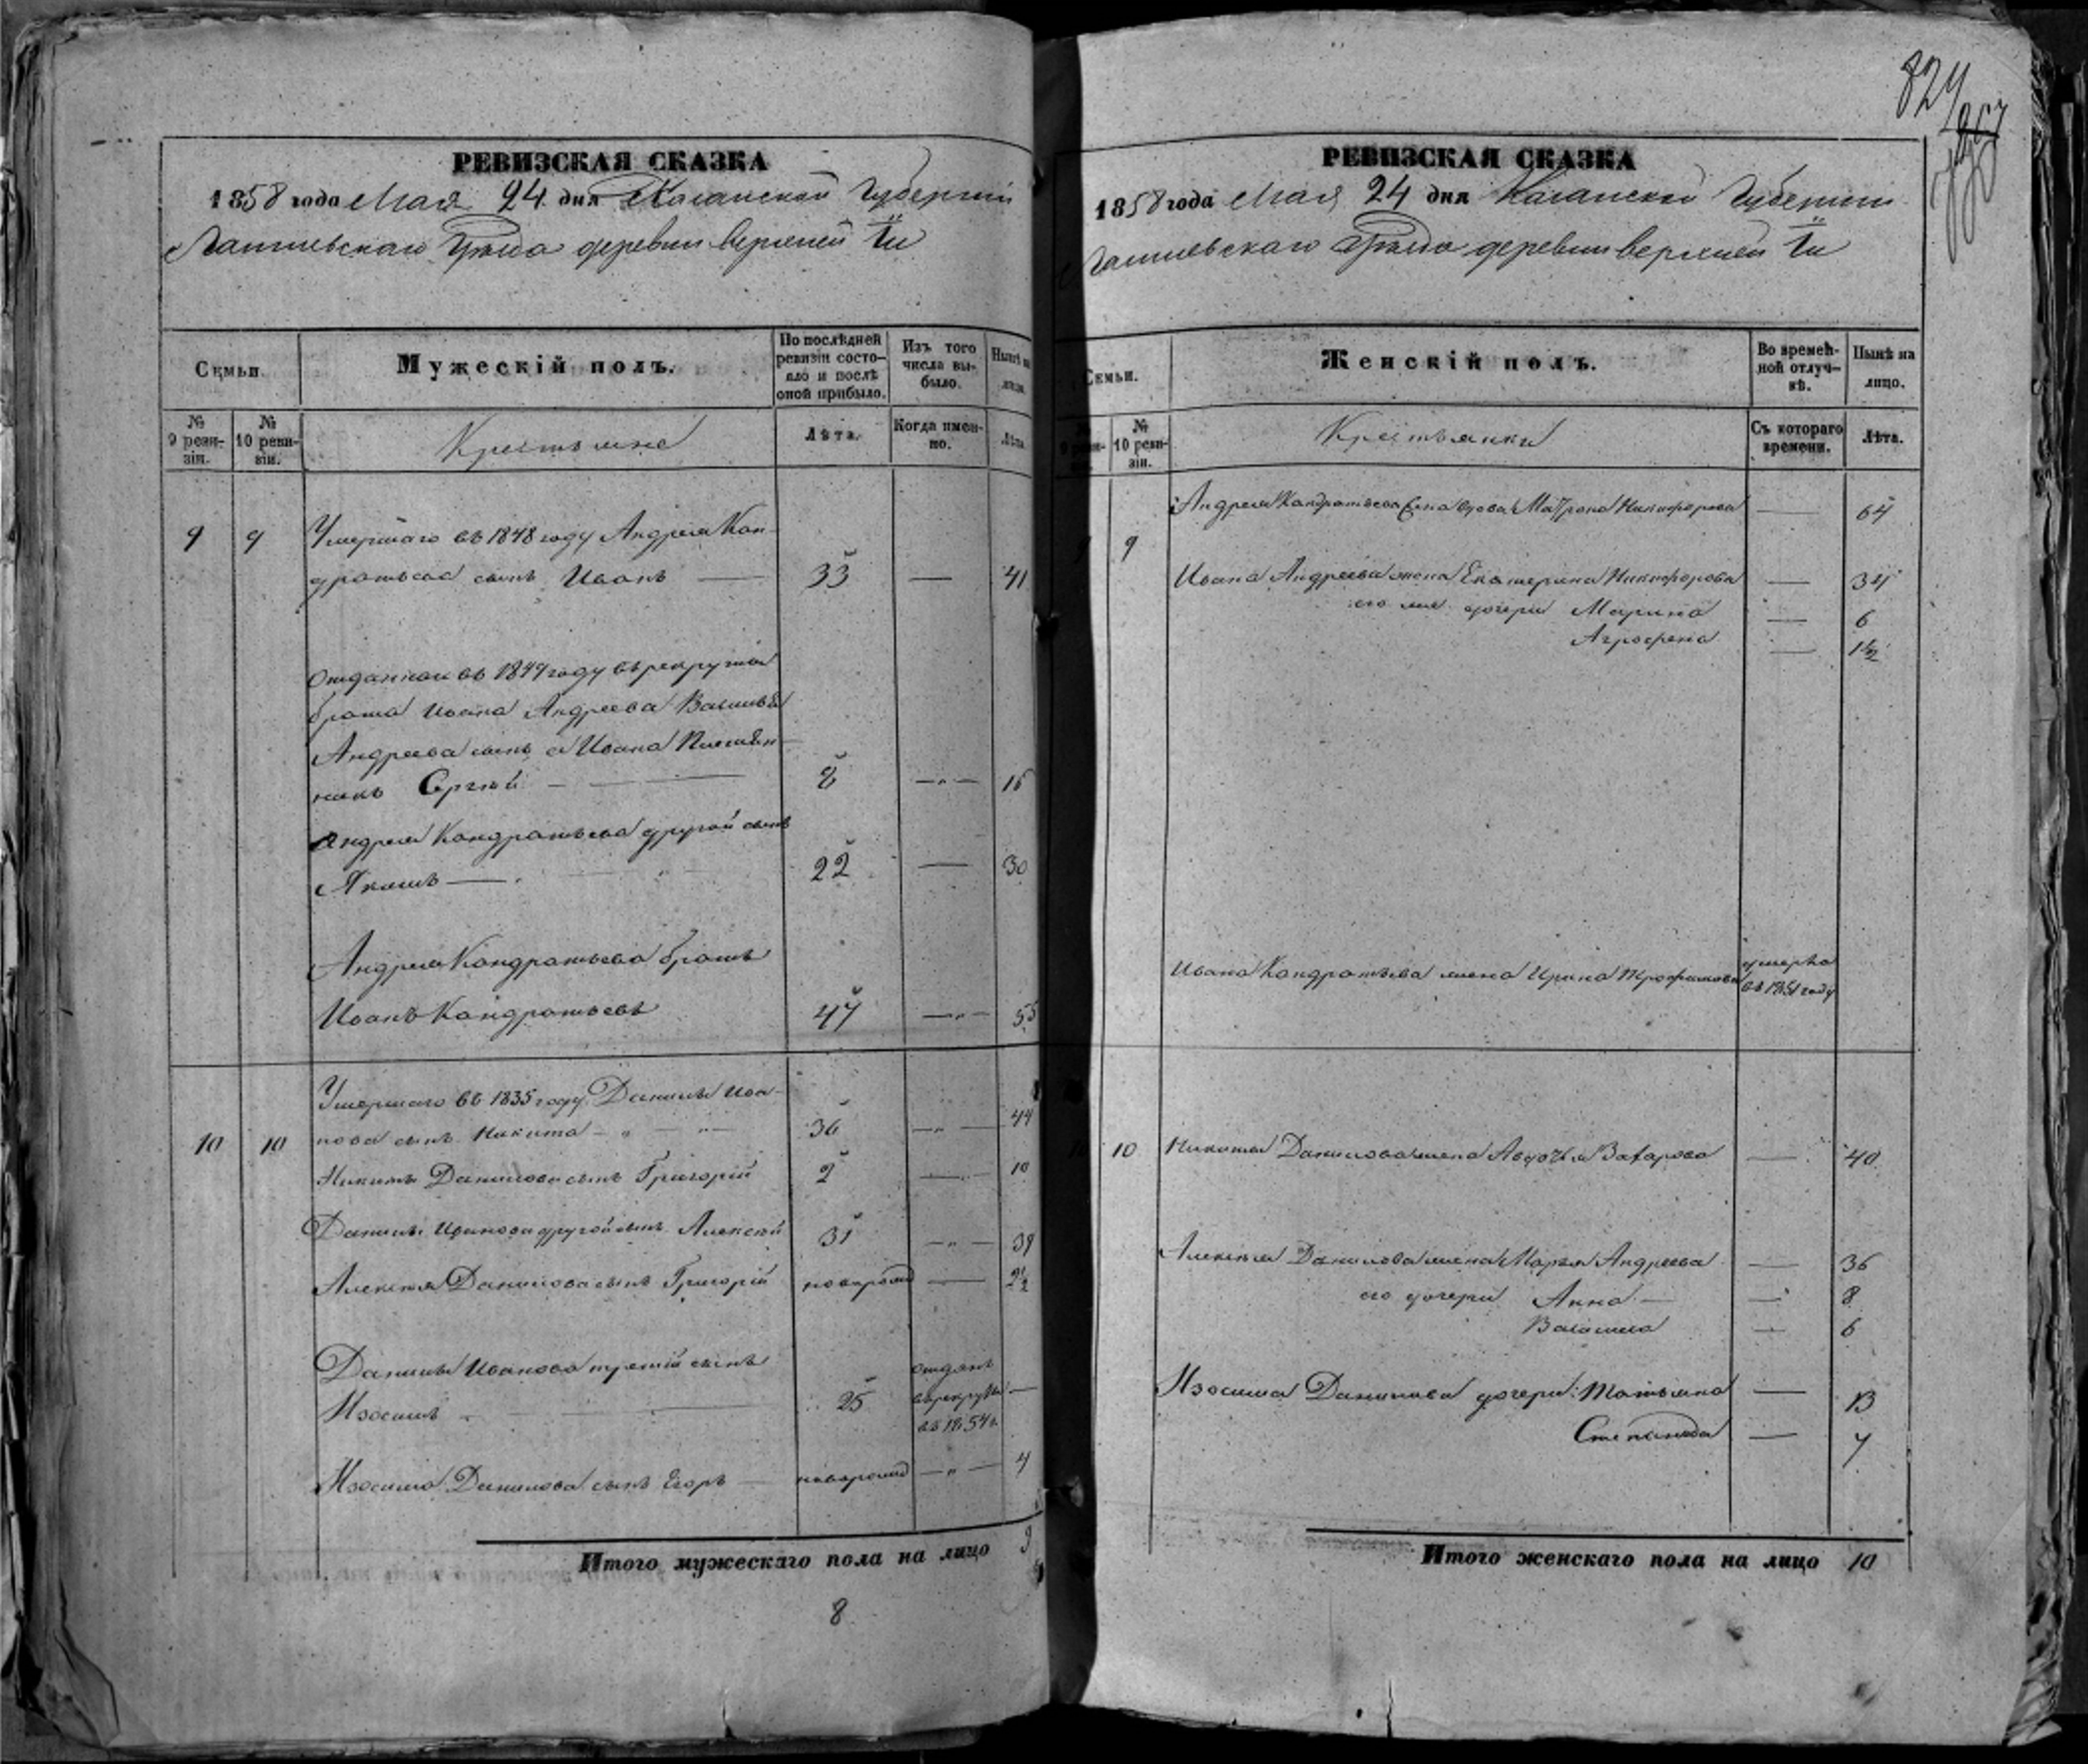 824
867
РЕВИЗСКАЯ СКАЗКА
1858 года Мая 24 дня Казанской Губерніи
Лаишевскаго Уѣзда деревни верхней
Семьи.
Мужескій полъ.
По послѣдней ревизіи состояло и послѣ оной прибыло.
Изъ того числа выбыло.
Нынѣ на лицо.
№ 9 ревизіи.
№ 10 ревизіи.
Крестьяне
Лѣта.
Когда именно.
Лѣта.
9 9 Умершаго въ 1848 году Андрея Кон-
дратьева сынъ Иванъ — 33 — 41
Отданнаго въ 1849 году въ рекруты
брата Ивана Андреева Василья
Андреева сынъ а Ивана Племян-
никъ Сергѣй — 8 — 16
Андрея Кондратьева другой сынъ
Акимъ — 22 — 30
Андрея Кондратьева братъ
Иванъ Кондратьевъ 47 — 55
10 10 Умершаго въ 1835 году Данилы Ива-
нова сынъ Никита — 36 — 44
Никиты Данилова сынъ Григорій 2 — 10
Данилы Иванова другой сынъ Алексѣй 31 — 39
Алексѣя Данилова сынъ Григорій новорожд — 2½
Данилы Иванова третій сынъ
Изосимъ — 25 отданъ въ рекруты въ 1854 г. —
Изосима Данилова сынъ Егоръ — новорожд — 4
Итого мужескаго пола на лицо 9
8
РЕВИЗСКАЯ СКАЗКА
1858 года Мая 24 дня Казанской Губерніи
Лаишевскаго Уѣзда деревни верхней
Семьи.
Женскій полъ.
Во временной отлучкѣ.
Нынѣ на лицо.
№ 10 ревизіи.
Крестьянки
Съ котораго времени.
Лѣта.
9 Андрея Кондратьева жена вдова Матрона Никифорова — 64
Ивана Андреева жена Екатерина Никифорова — 34
дочери Марина — 6
Аграфена — 1½
Ивана Кондратьева жена Ирина Трофимова умерла въ 1851 году
10 Никиты Данилова жена Авдотья Захарова — 40
Алексѣя Данилова жена Марья Андреева — 36
его дочери Анна — 8
Васалиса — 6
Изосима Данилова дочери: Татьяна — 13
Степанида — 7
Итого женскаго пола на лицо 10